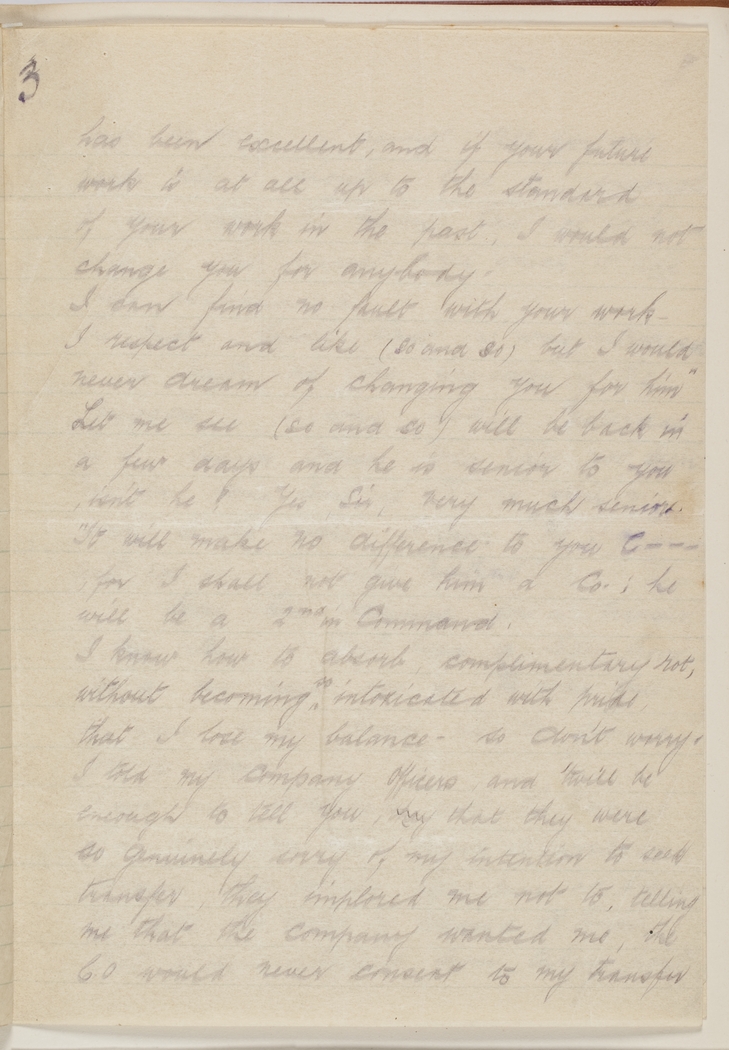 3
has been excellent, and if your future
work is at all up to the standard
of your work in the past, I would not
change you for anybody.
I can find no fault with your work -
I respect and like (so and so) but I would
never dream of changing you for him"
Let me see (so and so) will be back in
a few days and he is senior to you
, isn't he? Yes, Sir, very much senior.
"It will make no difference to you C---
, for I shall not give him a Co.; he
will be a 2nd in Command.
I know how to absorb, complimentary rot,
without becoming so intoxicated with pride,
that I lose my balance - so don't worry.
I told my Company Officers, and 'twill be
enough to tell you, that they were
so genuinely sorry of my intention to seek
transfer, they implored me not to, telling
me that the company wanted me, the
C.O would never consent to my transfer